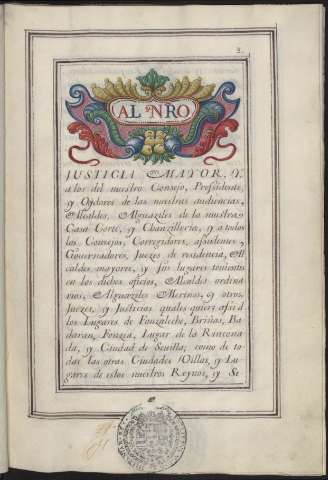 2.
AL NRO
JUSTICIA MAYOR, Y
a los del nuestro Consejo, Presidente,
y Oydores de las nuestras audiencias,
Alcaldes, Alguaziles de la nuestra
Casa Corte, y Chanzilleria, y a todos
los Consejos, Corregidores, asistentes,
Governadores, Juezes de residencia, Al
caldes mayores, y sus lugares tenientes
en los dichos oficios, Alcaldes ordina
rios, Alguaziles Merinos, y otros
Juezes, y Justicias quales quier: assi d
los Lugares de Fonzaleche, Briñas, Ba
daran, Fonzea, Lugar de la Rinconá
da, y Ciudad de Sevilla; como de to
das las otras Ciudades Villas, y Lu
gares de estos nuestros Reynos, y Se